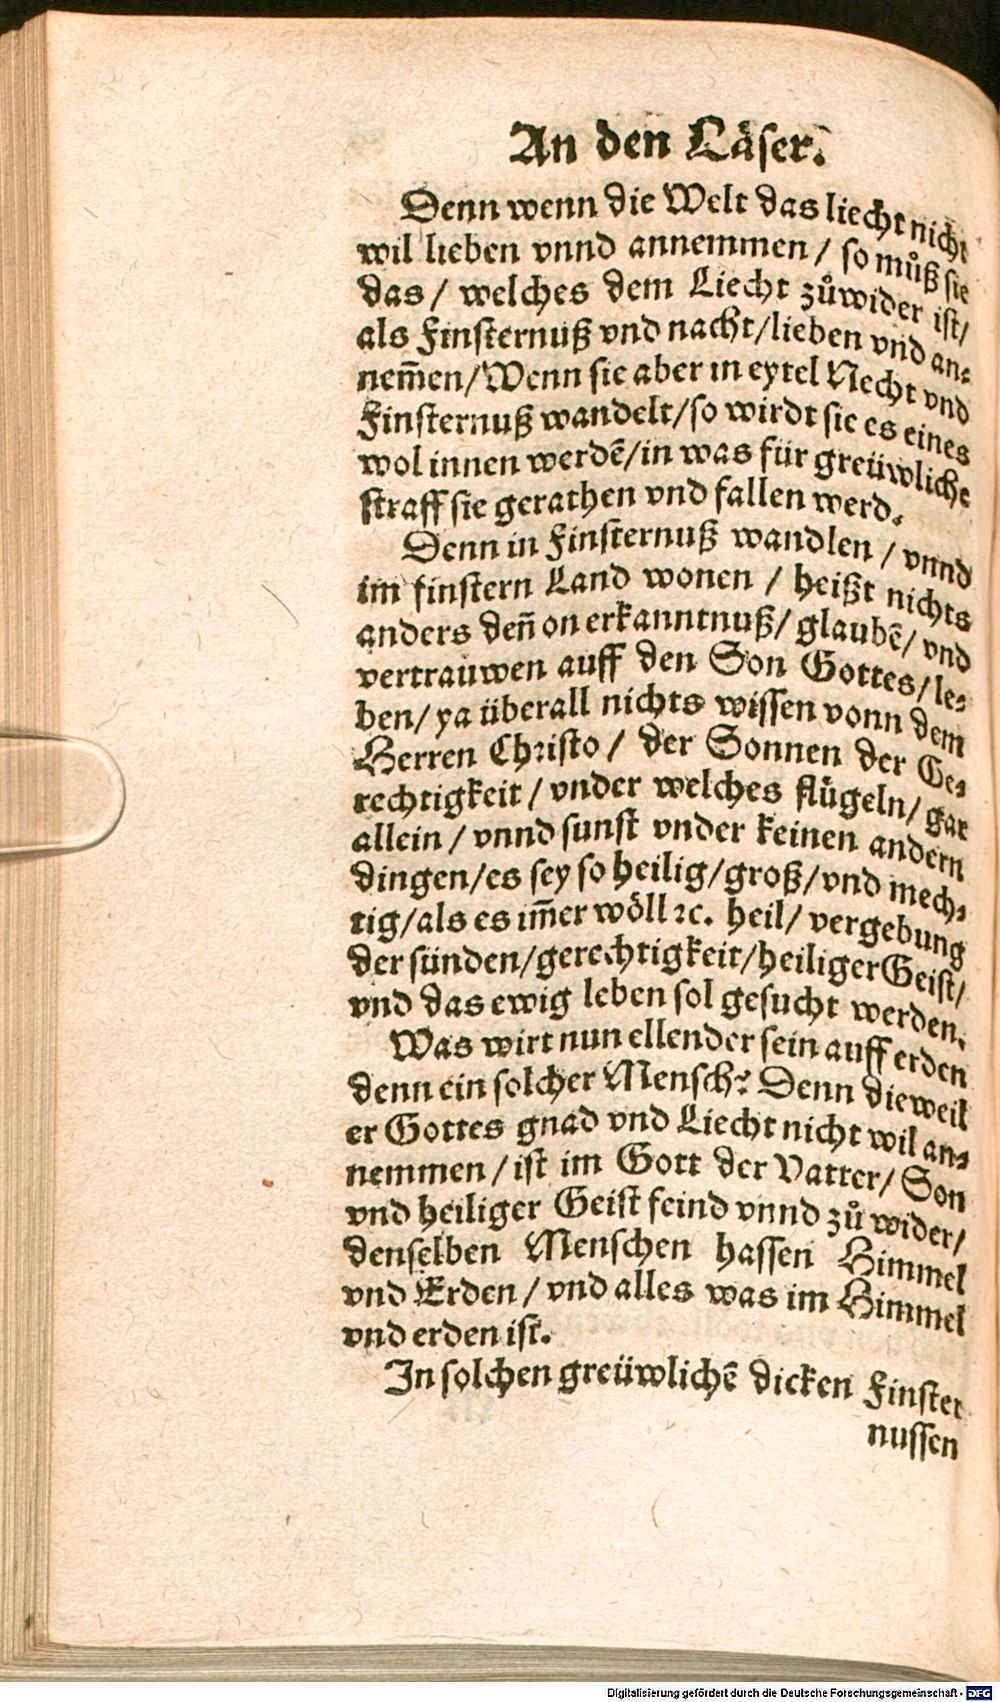 An den Läser.
Denn wenn die Welt das liecht nicht
wil lieben vnnd annemmen / so můß sie
das / welches dem Liecht zůwider ist/
als Finsternuß vnd nacht/lieben vnd an⸗
nem̃en/Wenn sie aber in eytel Necht vnd
Finsternuß wandelt/so wirdt sie es eines
wol innen werdẽ/in was für greüwliche
straff sie gerathen vnd fallen werd.
Denn in Finsternuß wandlen / vnnd
im finstern Land wonen / heißt nichts
anders deñ on erkanntnuß/ glaubẽ/ vnd
vertrauwen auff den Son Gottes/ le⸗
ben/ ya überall nichts wissen vonn dem
Herren Christo / der Sonnen der Ge⸗
rechtigkeit / vnder welches flügeln/ gar
allein / vnnd sunst vnder keinen andern
dingen/es sey so heilig/groß/vnd mech⸗
tig/als es im̃er wöll ꝛc. heil/ vergebung
der sünden/gerechtigkeit/heiliger Geist/
vnd das ewig leben sol gesucht werden.
Was wirt nun ellender sein auff erden
denn ein solcher Mensch? Denn dieweil
er Gottes gnad vnd Liecht nicht wil an⸗
nemmen / ist im Gott der Vatter/ Son
vnd heiliger Geist feind vnnd zů wider/
denselben Menschen hassen Himmel
vnd Erden / vnd alles was im Himmel
vnd erden ist.
In solchen greüwlichẽ dicken Finster
nussen
Digitalisierung gefördert durch die Deutsche Forschungsgemeinschaft - DFG